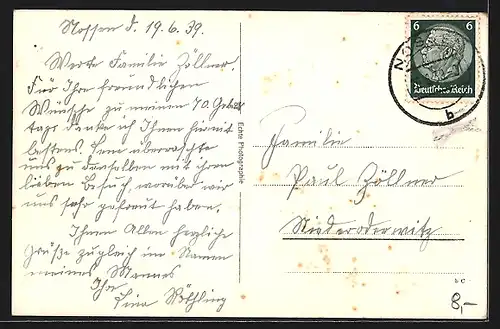 Nossen d. 19.6.39.
Werte Familie Zöllner.
Für Ihre freundlichen
Wünsche zu meinem 70. Geburts
tage danke ich Ihnen hiermit
bestens. Lene überraschte
uns zu demselben mit ihrem
lieben Besuch, worüber wir
uns sehr gefreut haben.
Ihnen Allen herzliche
Grüße zugleich im Namen
meines Mannes
Ihre
Lina
Echte Photographie
6 6
Deutsches Reich
NOSSEN
b
Familie
Paul Zöllner
Niederoderwitz
8,-